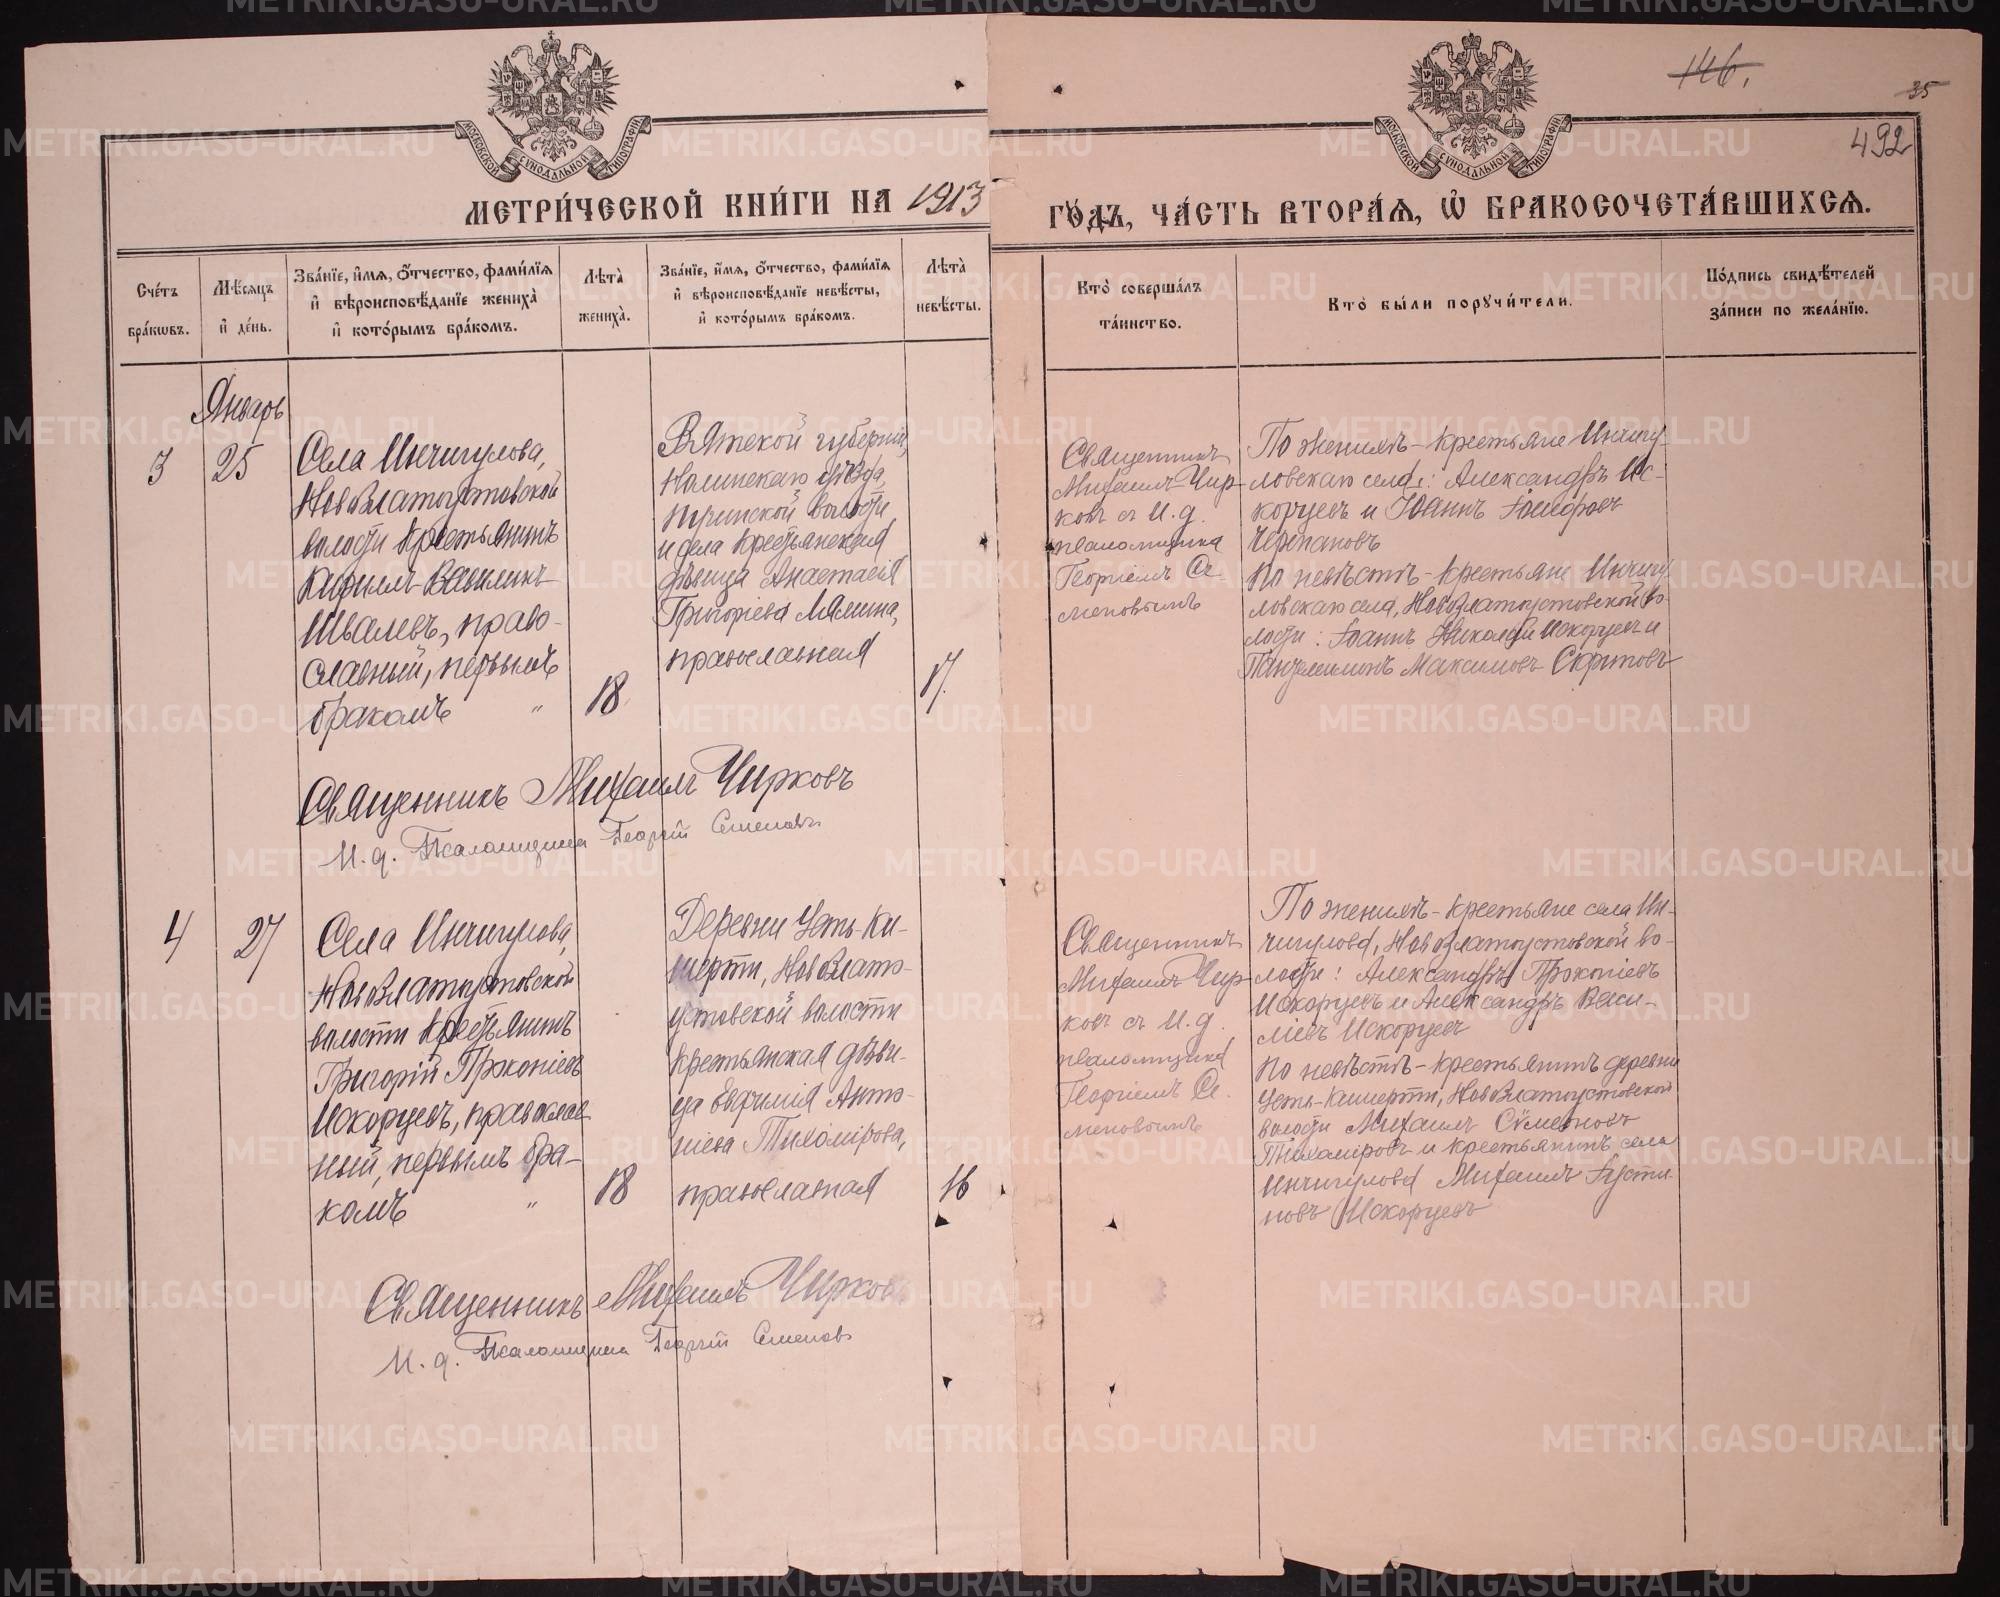 146.
35
492
МОСКОВСКОЙ СѴНОДАЛЬНОЙ ТИПОГРАФІИ
МОСКОВСКОЙ СѴНОДАЛЬНОЙ ТИПОГРАФІИ
МЕТРИ́ЧЕСКОЙ КНИ́ГИ НА 1913 ГО́ДЪ, ЧА́СТЬ ВТОРА́Ѧ, Ѽ БРАКОСОЧЕТА́ВШИХСѦ.
Сче́тъ
бра́кѡвъ.
Мѣ́сѧцъ
и҆ де́нь.
Зва́нїе, и҆́мѧ, ѻ҆́тчество, фами́лїѧ
и҆ вѣроисповѣ́данїе жениха̀
и҆ кото́рымъ бра́комъ.
Лѣта̀
жениха̀.
Зва́нїе, и҆́мѧ, ѻ҆́тчество, фами́лїѧ
и҆ вѣроисповѣ́данїе невѣ́сты,
и҆ кото́рымъ бра́комъ.
Лѣта̀
невѣ́сты.
Кто̀ соверша́лъ
та́инство.
Кто̀ бы́ли порꙋчи́тели.
По́дпись свидѣ́телей
за́писи по жела́нїю.
Январь
3
25
Села Инчигулова,
Новозлатоустовской
волости крестьянинъ
Кирилъ
Швалевъ, право-
славный, первымъ
бракомъ "
18
Вятской губерніи,
Нолинскаго уѣзда,
волости
и села крестьянская
дѣвица Анастасія
Григоріева Мялина,
православная
17.
Священникъ
Михаилъ Чир-
ковъ съ И. д.
псаломщика
Георгіемъ Се-
меновымъ
По женихѣ - крестьяне Инчигу-
ловскаго села: Александръ Ис-
корцевъ и Іоаннъ Іосифовъ
Черепановъ
По невѣстѣ - крестьяне Инчигу-
ловскаго села, Новозлатоустовской во-
лости: Іоаннъ Искорцевъ и
Максимовъ
Священникъ Михаилъ Чирковъ
И. д. Псаломщика Георгій Семеновъ
4
27
Села Инчигулова,
Новозлатоустовской
волости крестьянинъ
Григорій Прокопіевъ
Искорцевъ, православ
ный, первымъ бра-
комъ "
18
Деревни Усть-Ки-
шерти, Новозлато-
устовской волости
крестьянская дѣви-
ца Евфимія Анто-
ніева Тихомірова,
православная
16
Священникъ
Михаилъ Чир-
ковъ съ И. д.
псаломщика
Георгіемъ Се-
меновымъ
По женихѣ - крестьяне села Ин-
чигулова, Новозлатоустовской во-
лости: Александръ Прокопіевъ
Искорцевъ и Александръ Васи-
ліевъ Искорцевъ
По невѣстѣ - крестьянинъ деревни
Усть-Кишерти, Новозлатоустовской
волости Михаилъ Сѵмеоновъ
Тихоміровъ и крестьянинъ села
Инчигулова Михаилъ Іусти-
новъ Искорцевъ
Священникъ Михаилъ Чирковъ
И. д. Псаломщика Георгій Семеновъ
METRIKI.GASO-URAL.RU